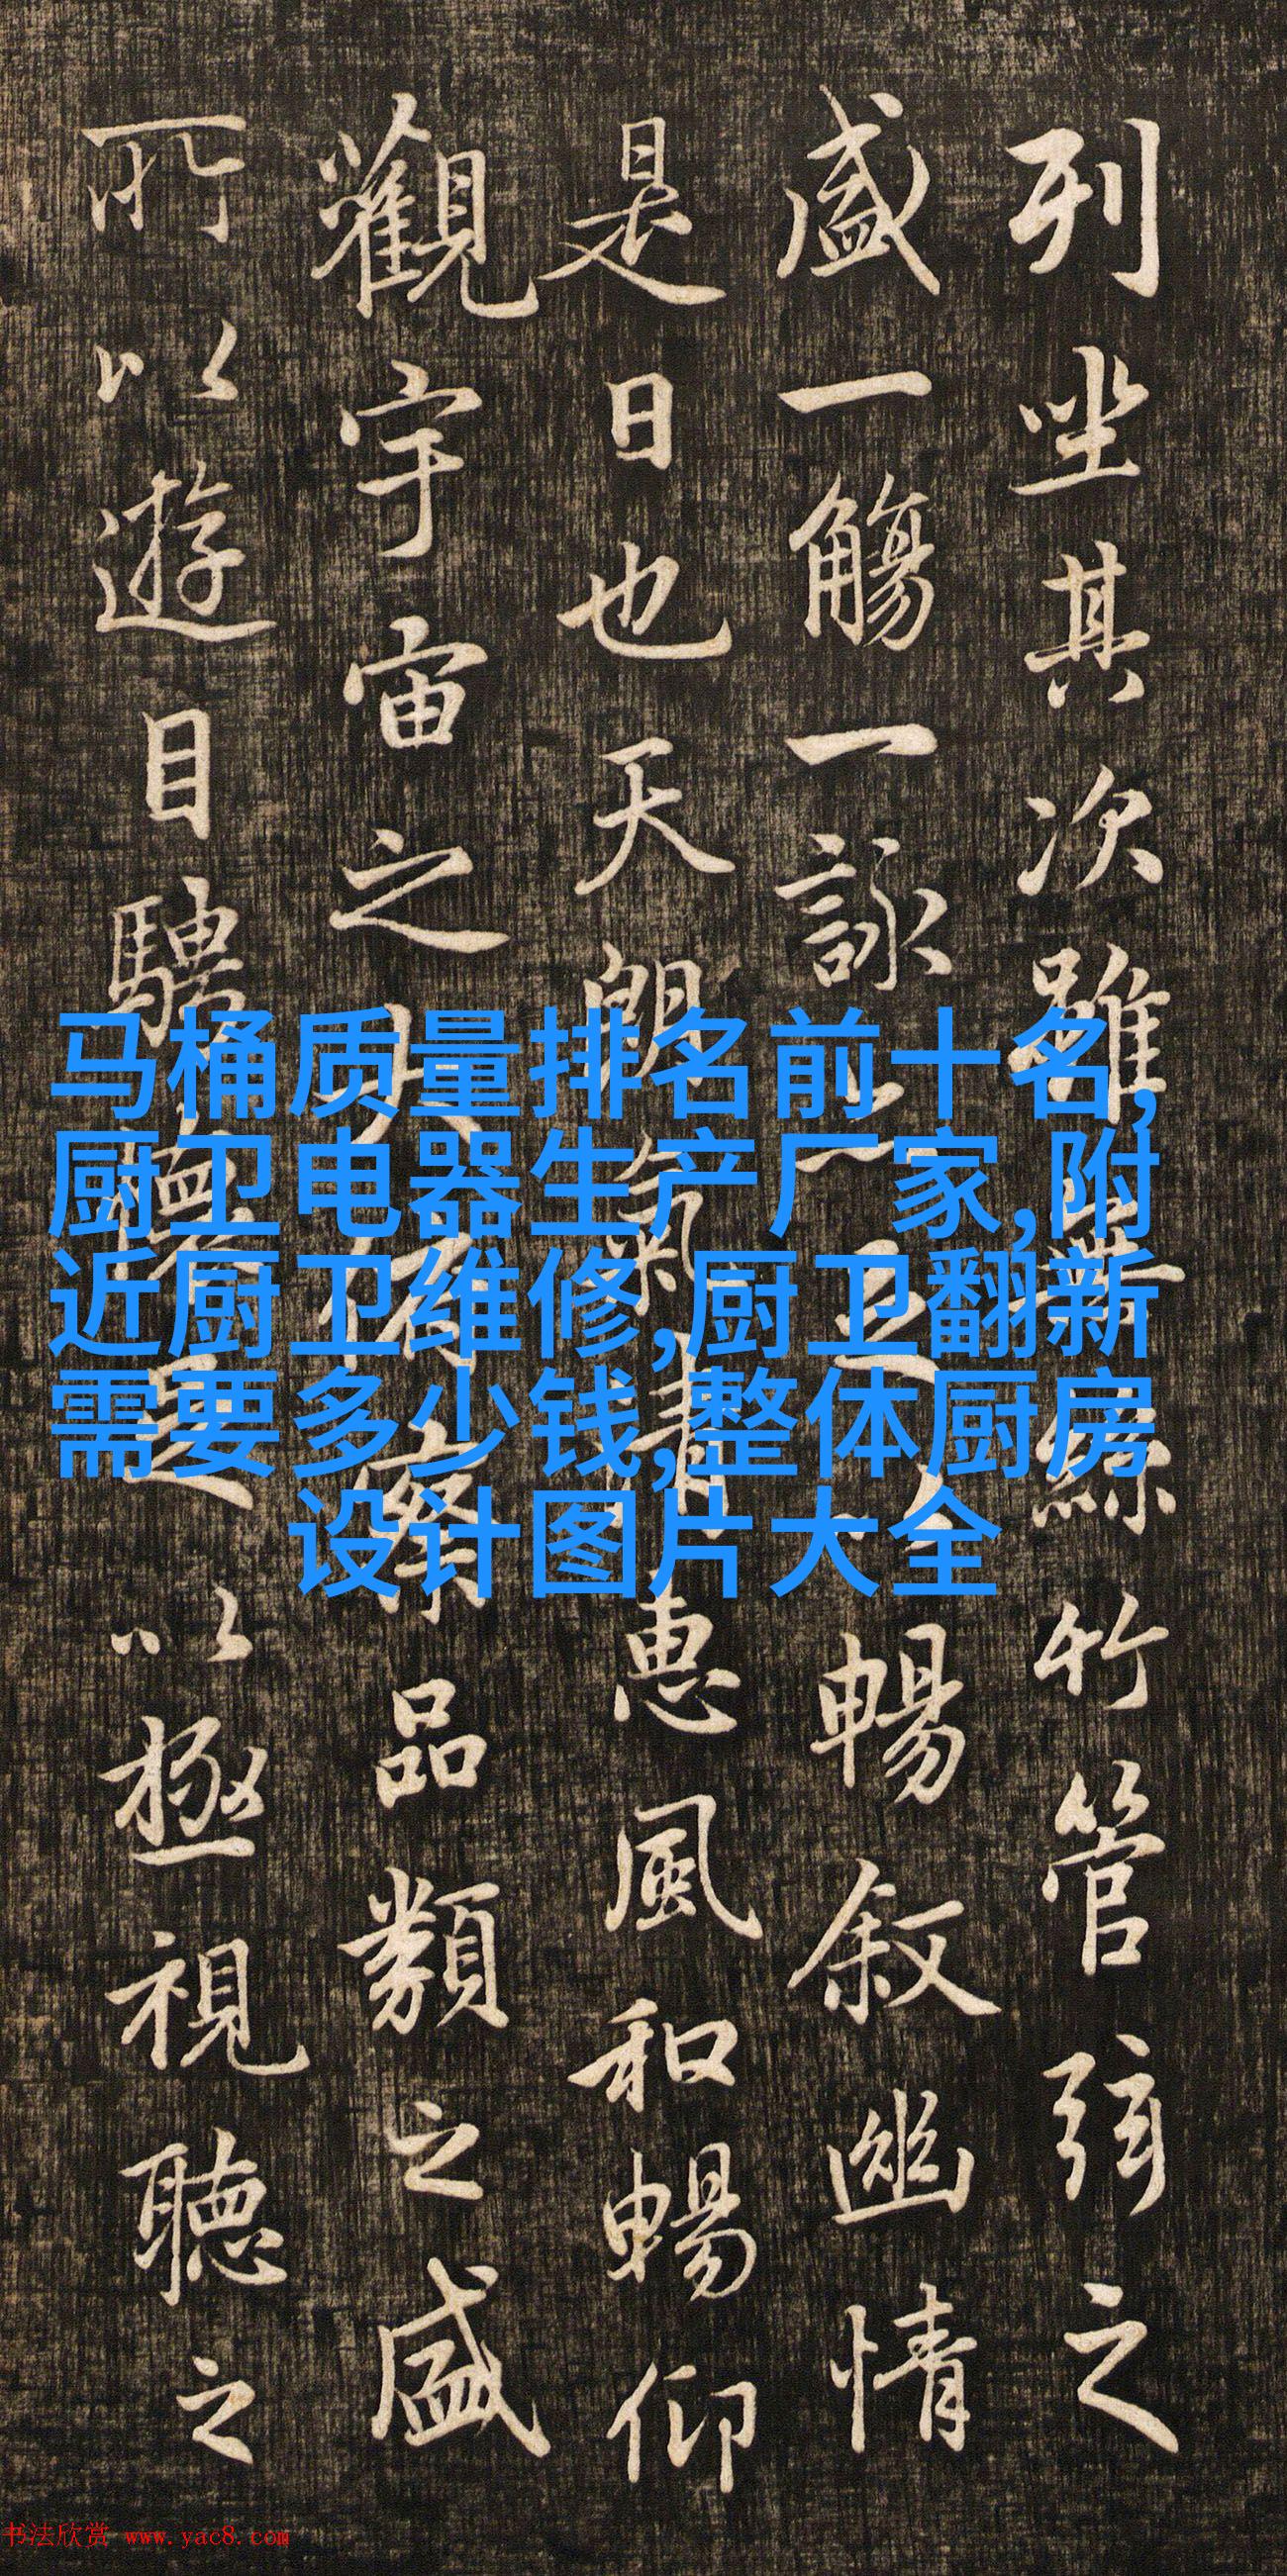 列坐其次雖無絲竹管弦之
盛一觴一詠亦足以暢叙幽情
是日也天朗氣清惠風和暢仰
觀宇宙之大俯察品類之盛
所以遊目騁懷足以極視聽之
马桶质量排名前十名,
厨卫电器生产厂家,附
近厨卫维修,厨卫翻新
需要多少钱,整体厨房
设计图片大全
书法欣赏 www.yac8.com